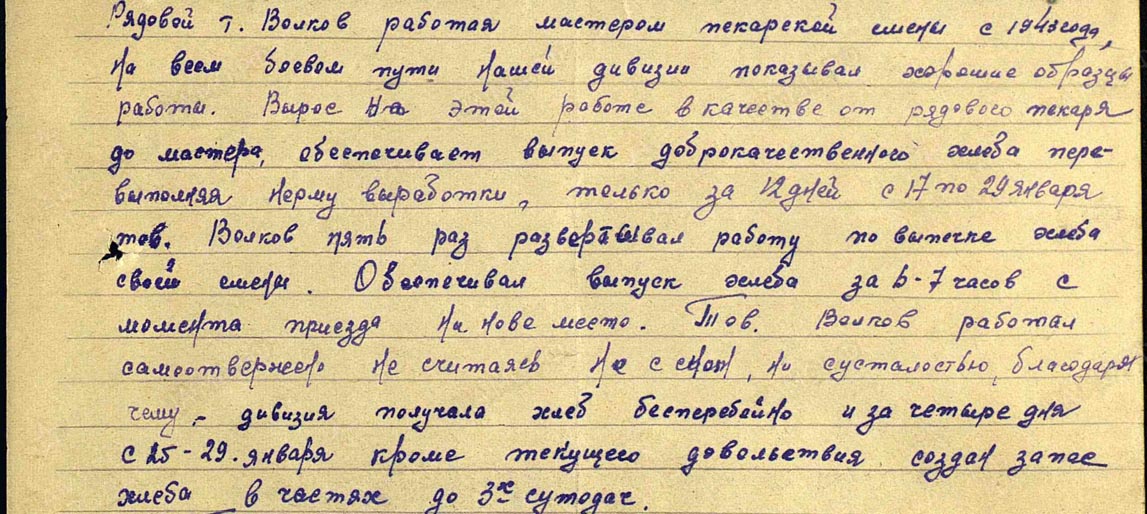 Рядовой т. Волков работая мастером пекарской смены с 1943 года,
на всем боевом пути нашей дивизии показывал хорошие образцы
работы. Вырос на этой работе в качестве от рядового пекаря
до мастера, обеспечивает выпуск доброкачественного хлеба пере-
выполняя норму выработки, только за 12 дней с 17 по 29 января
тов. Волков пять раз развертывал работу по выпечке хлеба
своей смены. Обеспечивал выпуск хлеба за 6-7 часов с
момента приезда на нове место. Тов. Волков работал
самоотвержено не считаясь не с сном, ни с усталостью, благодаря
чему - дивизия получала хлеб бесперебойно и за четыре дня
с 25-29. января кроме текущего довольствия создан запас
хлеба в частях до 3х сутодач.